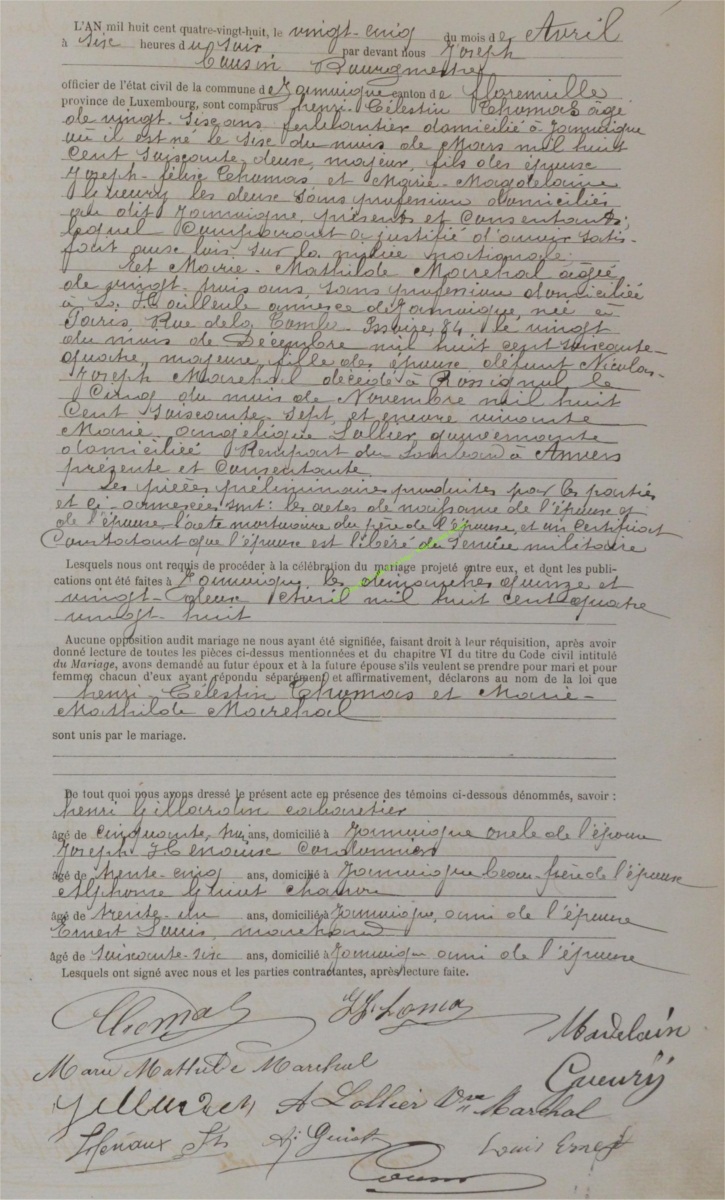 L'AN mil huit cent quatre-vingt-huit, le vingt-cinq du mois de Avril
à six heures du soir par devant nous Joseph
Cousin Bourgmestre
officier de l'état civil de la commune de Jamoigne canton de florenville
province de Luxembourg, sont comparus henri-Célestin Thomas âgé
de vingt-six ans ferblantier domicilié à Jamoigne
où il est né le six du mois de Mars mil huit
Cent Soixante-deux, majeur, fils des épouse
Joseph-feuse Thomas et Marie-Magdelaine
Gueury les deux sans profession domiciliés
au dit Jamoigne, présents et Consentants;
lequel Comparant a justifié d'avoir satis-
fait aux lois sur la milice nationale.
Et Marie-Mathilde Marchal âgée
de vingt-trois ans, sans profession domiciliée
à La Hailleule annexe de Jamoigne, née à
Paris, Rue de la Tombe-Issoire, 84, le vingt
du mois de Décembre mil huit cent soixante-
quatre, majeure, fille des épouse défunt Nicolas-
Joseph Marchal décédé à Rossignol le
Cinq du mois de Novembre mil huit
Cent Soixante-Sept, et encore vivante
Marie-angélique Lallier gouvernante
domiciliée Rempart du Lombard à Anvers
présente et Consentante.
Les pièces préliminaire produites par les parties
et ci-annexées sont: les actes de naissance de l'épouse et
de l'épouse, l'acte mortuaire du père de l'épouse, et un Certificat
Constatant que l'épouse est libéré du Service militaire
Lesquels nous ont requis de procéder à la célébration du mariage projeté entre eux, et dont les publi-
cations ont été faites à Jamoigne, les dimanches quinze et
vingt-deux Avril mil huit cent quatre
vingt-huit
Aucune opposition audit mariage ne nous ayant été signifiée, faisant droit à leur réquisition, après avoir
donné lecture de toutes les pièces ci-dessus mentionnées et du chapitre VI du titre du Code civil intitulé
du Mariage, avons demandé au futur époux et à la future épouse s'ils veulent se prendre pour mari et pour
femme; chacun d'eux ayant répondu séparément et affirmativement, déclarons au nom de la loi que
henri-Célestin Thomas et Marie-
Mathilde Marchal
sont unis par le mariage.
De tout quoi nous avons dressé le présent acte en présence des témoins ci-dessous dénommés, savoir :
henri Gillardin cabaretier
âgé de cinquante-huit ans, domicilié à Jamoigne oncle de l'épouse
Joseph Henaux Cordonnier
âgé de trente-cinq ans, domicilié à Jamoigne beau-frère de l'épouse
Alphonse Guiot Charron
âgé de trente-un ans, domicilié à Jamoigne, ami de l'épouse
Ernest Louis, marchand
âgé de soixante-six ans, domicilié à Jamoigne ami de l'épouse
Lesquels ont signé avec nous et les parties contractantes, après lecture faite.
Thomas
Madelain
Marie Mathilde Marchal
Gueury
A Lallier Vve Marchal
Henaux Jh A. Guiot Louis Ernest
Cousin